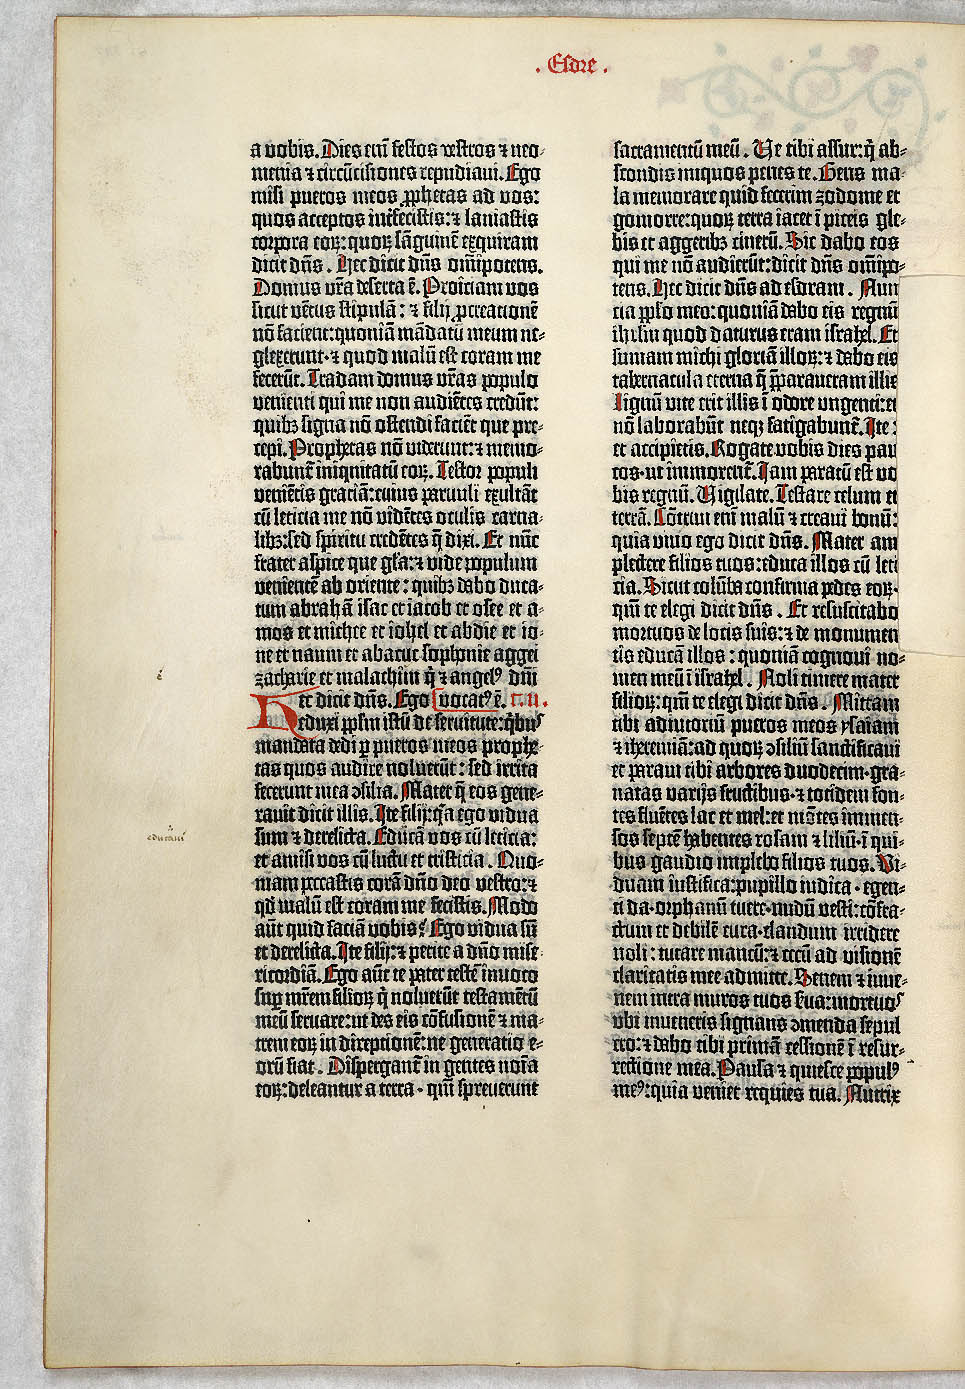 . Esdre .
a vobis. Dies eni̅ festos vestros ⁊ neo-
menia ⁊ circu̅cisiones repudiavi. Ego
misi pueros meos ꝓphetas ad vos:
quos acceptos interfecistis: ⁊ laniastis
corpora eoꝝ: quoꝝ sa̅guine̅ exquiram
dicit dn̅s. Hec dicit dn̅s om̅ipotens.
Domus vr̅a deserta e̅. Proiciam vos
sicut ve̅tus stipula̅: ⁊ filij ꝓcreatione̅
no̅ facient: quonia̅ ma̅datu̅ meum ne-
glexerunt· ⁊ quod malu̅ est coram me
fecerūt. Tradam domus vr̅as populo
venienti qui me non audie̅tes credūt:
quibꝫ signa no̅ ostendi facie̅t que pre-
cepi. Prophetas no̅ viderunt: ⁊ memo-
rabunt̅ iniquitatu̅ eoꝝ. Testor populi
venie̅tis gracia̅: cuius parvuli exulta̅t
cu̅ leticia me no̅ vide̅tes oculis carna-
libꝫ: sed spiritu crede̅tes q̅ dixi. Et nu̅c
frater aspice que gl̅a: ⁊ vide populum
veniente̅ ab oriente: quibꝫ dabo duca-
tum abraha̅ isac et iacob et osee et a-
mos et michee et iohel et abdie et io-
ne et naum et abacuc sophonie aggei
zacharie et malachim q̅ ⁊ angelꝰ dn̅i
Hec dicit dn̅s. Ego vocatꝰ e̅. c. ii.
eduxi pp̅lm istu̅ de servitute: q̅bus
mandata dedi ꝑ pueros meos prophe-
tas quos audire noluerūt: sed irrita
fecerunt mea ꝯsilia. Mater q̅ eos gene-
ravit dicit illis. Ite filij: q̅a ego vidua
sum ⁊ derelicta. Educa̅ vos cu̅ leticia:
et amisi vos cu̅ luctu et tristicia. Quo-
niam peccastis cora̅ dn̅o deo vestro: ⁊
qd̅ malu̅ est coram me fecistis. Modo
au̅t quid facia̅ vobis? Ego vidua su̅
et derelicta. Ite filij: ⁊ petite a dn̅o mise-
ricordia̅. Ego au̅t te pater teste̅ invoco
sup̅ mr̅em filioꝝ q̅ noluerūt testame̅tu̅
meu̅ servare: ut des eis co̅fusione̅ ⁊ ma-
trem eoꝝ in direptione̅: ne generatio e-
oru̅ fiat. Dispergant̅ in gentes no̅i̅a
eoꝝ: deleantur a terra · qm̅ spreverunt
sacramentu̅ meu̅. Ve tibi assur: q̅ ab-
scondis iniquos penes te. Gens ma-
la memorare quid fecerim zodome et
gomorre: quoꝝ terra iacet i̅ piceis gle-
bis et aggeribꝫ cineru̅. Sic dabo eos
qui me no̅ audierūt: dicit dn̅s om̅ipo-
tens. Hec dicit dn̅s ad esdram. Nun
cia pp̅lo meo: quonia̅ dabo eis regnu̅
ihr̅lm quod daturus eram israhel. Et
sumam michi gloria̅ illoꝝ: ⁊ dabo eis
tabernacula eterna q̅ p̅paraveram illis
Lignu̅ vite erit illis i̅ odore ungenti: et
no̅ laborabūt neqꝫ fatigabunt̅. Ite:
et accipietis. Rogate vobis dies pau
cos· ut inmorent̅. Iam paratu̅ est vo
bis regnu̅. Vigilate. Testare celum et
terra̅. Co̅trivi eni̅ malu̅ ⁊ creavi bonu̅:
quia vivo ego dicit dn̅s. Mater am
plectere filios tuos: educa illos cu̅ leti
cia. Sicut colu̅ba confirma pedes eoꝝ·
qm̅ te elegi dicit dn̅s. Et resuscitabo
mortuos de locis suis: ⁊ de monumen
tis educa̅ illos: quonia̅ cognovi no-
men meu̅ i̅ israhel. Noli timere mater
filioꝝ: qm̅ te elegi dicit dn̅s. Mittam
tibi adiutoriu̅ pueros meos ysaiam
⁊ iheremia̅: ad quoꝝ ꝯsiliu̅ sanctificavi
et paravi tibi arbores duodecim· gra-
vatas varijs fructibus· ⁊ totidem fon-
tes flue̅tes lac et mel: et mo̅tes immen-
sos septe̅ habentes rosam ⁊ liliu̅· i̅ qui-
bus gaudio implebo filios tuos. Vi-
duam iustifica: pupillo iudica· egen-
ti da· orphanu̅ tuere· nudu̅ vesti: co̅fra-
ctum et debile̅ cura· claudum irridere
noli: tutare mancu̅: ⁊ cecu̅ ad visione̅
claritatis mee admitte. Senem ⁊ iuve-
nem intra muros tuos s̅va: mortuos
ubi inveneris signans ꝯmenda sepul
cro: ⁊ dabo tibi prima̅ cessione̅ i̅ resur-
rectione mea. Pausa ⁊ quiesce populꝰ
meꝰ: quia veniet requies tua. Nutrix
e̅
educavi